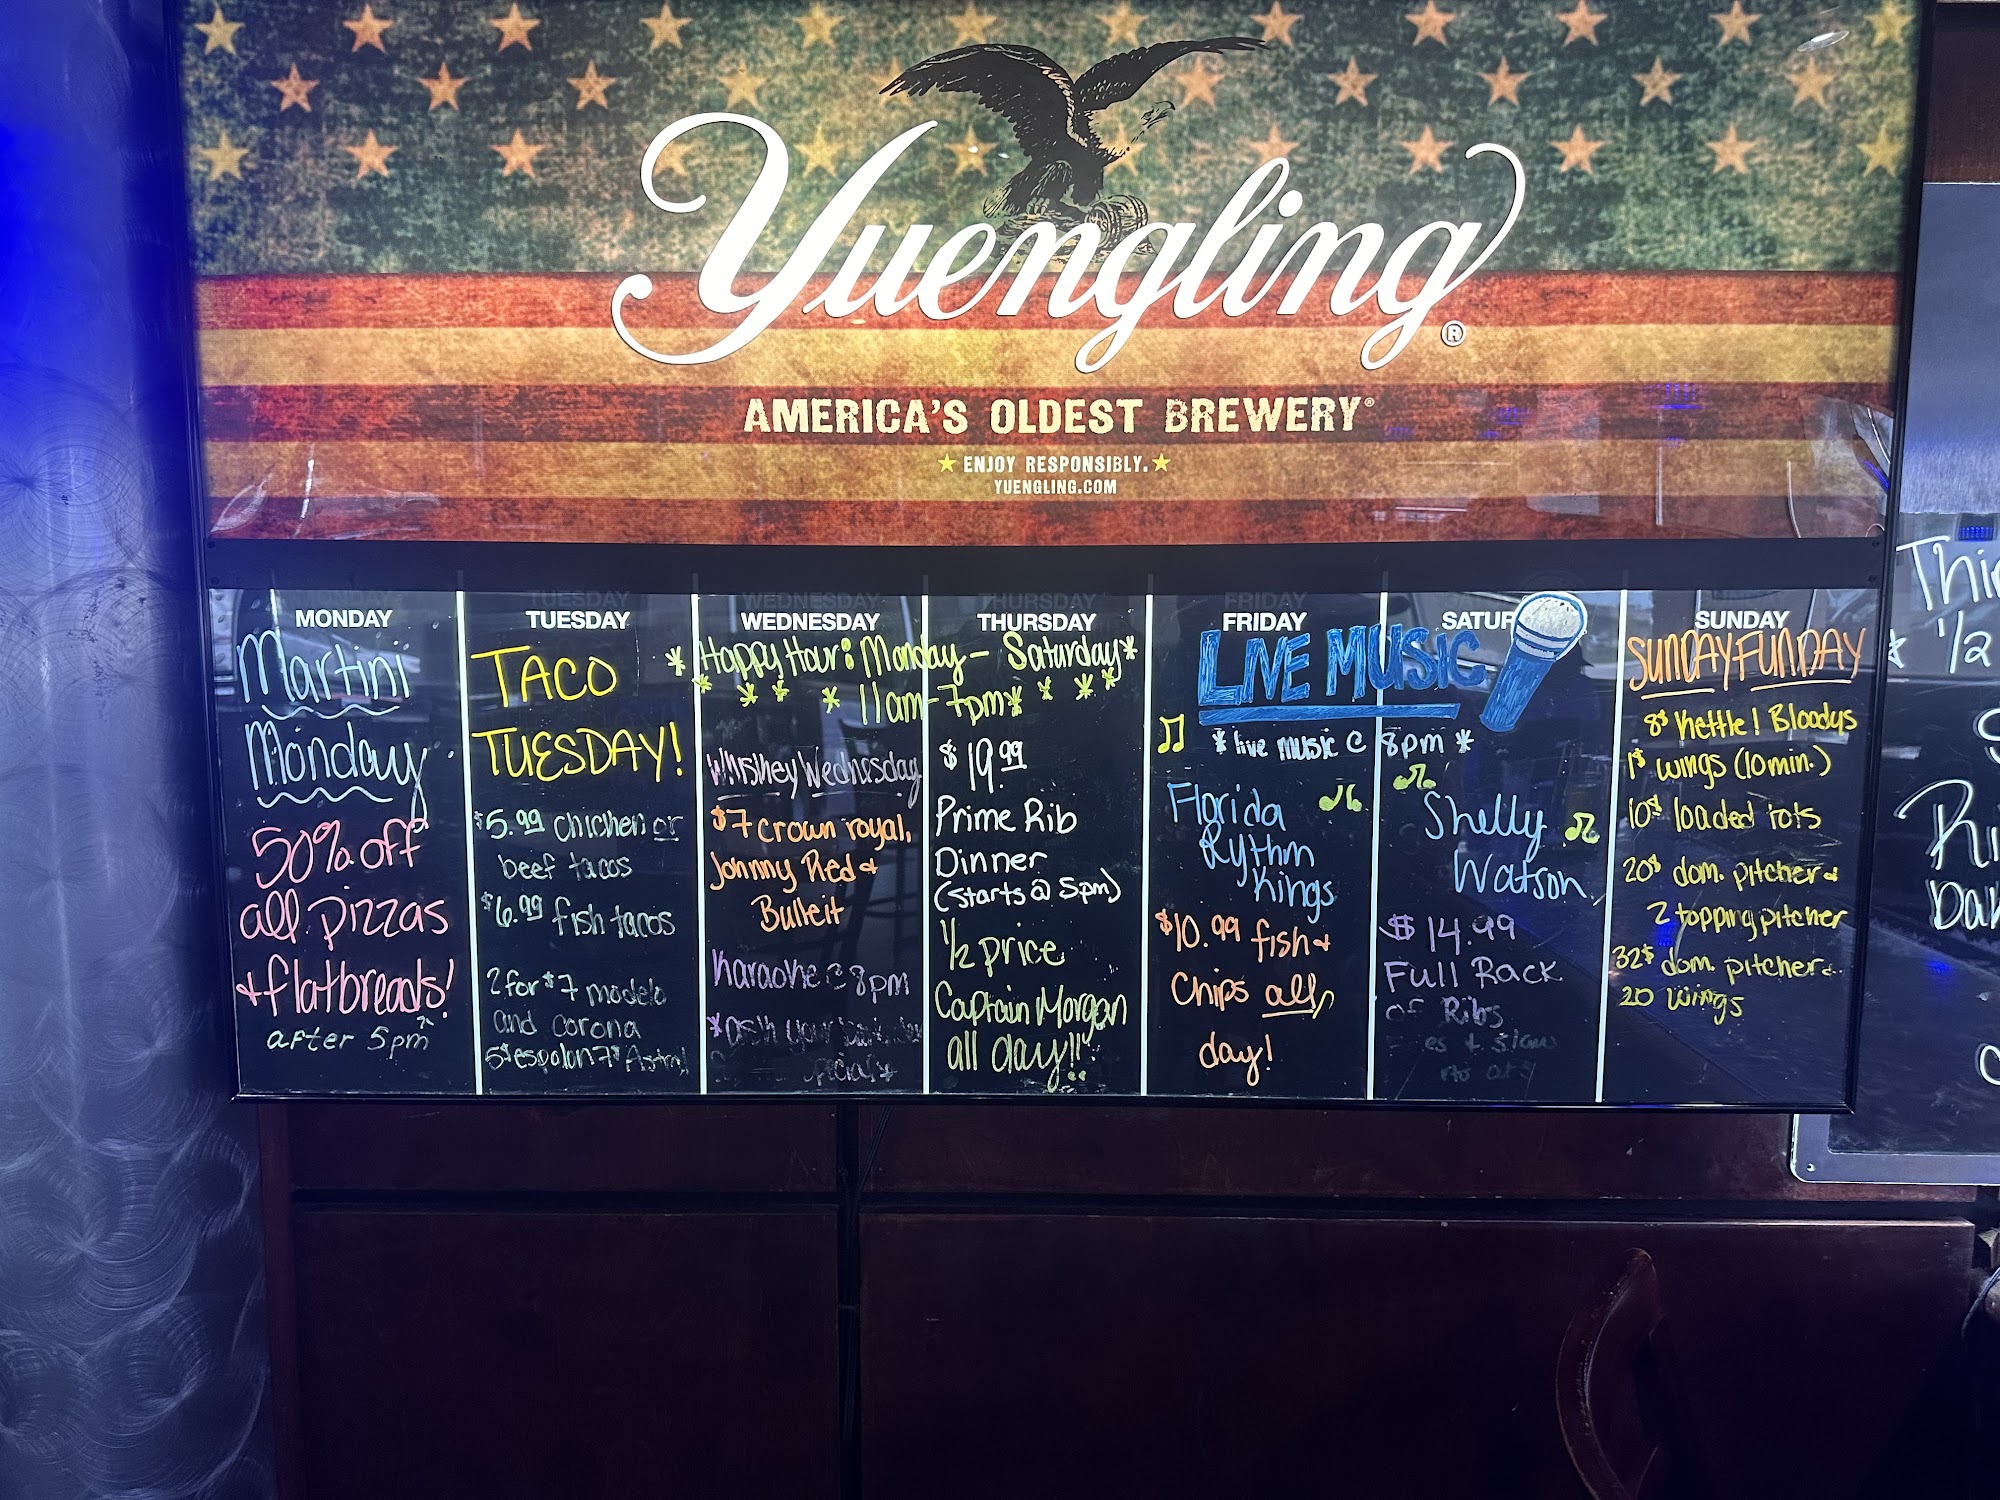 Yuengling®
AMERICA'S OLDEST BREWERY®
ENJOY RESPONSIBLY.
YUENGLING.COM
MONDAY
Martini
Monday
50% off
all pizzas
+ flatbreads!
after 5pm
TUESDAY
TACO
TUESDAY!
$5.99 chicken or
beef tacos
$6.99 fish tacos
2 for $7 modelo
and corona
5$ espolon 7$
WEDNESDAY
THURSDAY
*Happy Hour: Monday - Saturday*
* * * * 11am-7pm* * * *
Whiskey Wednesday
$7 crown royal,
Johnny Red +
Bulleit
Karaoke @ 8pm
*ask your
specials*
$19.99
Prime Rib
Dinner
(starts @ 5pm)
1/2 price
Captain Morgan
all day!!
FRIDAY
SATUR
LIVE MUSIC
*live music @ 8pm*
Florida
Rythm
Kings
$10.99 fish +
Chips all
day!
Shelly
Watson
$14.99
Full Rack
of Ribs
SUNDAY
SUNDAY FUNDAY
8$ Kettle! Bloodys
1$ wings (10 min.)
10$ loaded tots
20$ dom. pitcher +
2 topping pitcher
32$ dom. pitcher +
20 wings
1/2